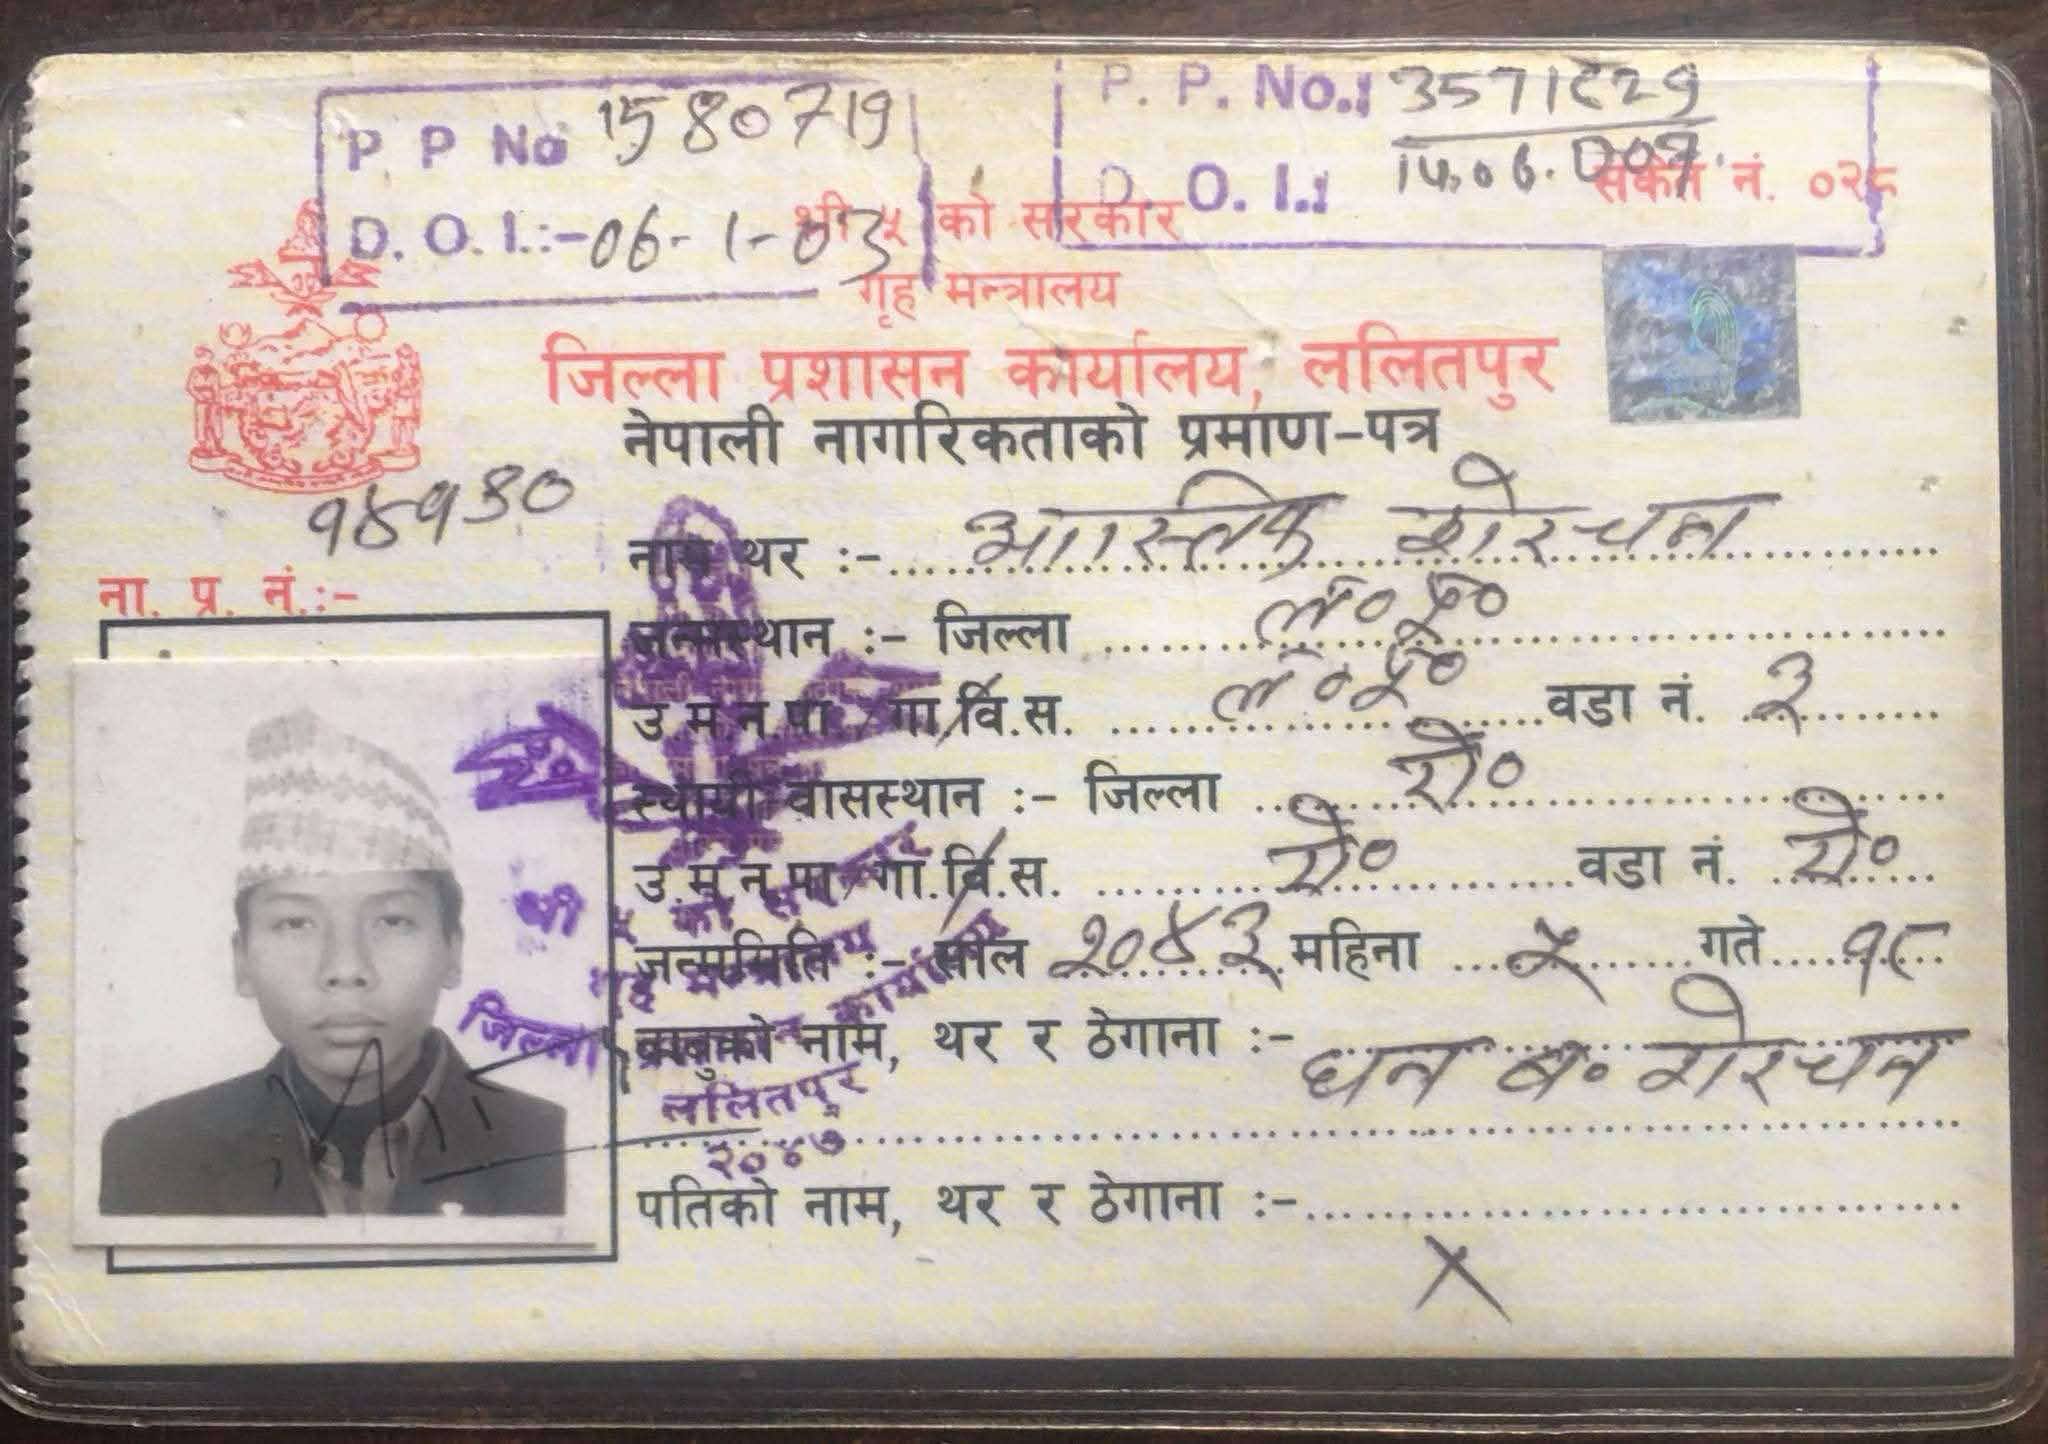 P. P. No 1580719
D. O. I.:- 06-1-03
P. P. No.:
D. O. I.:
संकेत नं. ०२८
श्री ५ को सरकार
गृह मन्त्रालय
जिल्ला प्रशासन कार्यालय, ललितपुर
नेपाली नागरिकताको प्रमाण-पत्र
ना. प्र. नं.:-
नाम थर :- आस्तिक शेरचन
जन्मस्थान :- जिल्ला ल०पु०
उ.म.न.पा./गा.वि.स. ल०पु० वडा नं. ३
स्थायी वासस्थान :- जिल्ला ऐ०
उ.म.न.पा./गा.वि.स. ऐ० वडा नं. ऐ०
जन्ममिति :- साल २०४३ महिना ५ गते १८
बाबुको नाम, थर र ठेगाना :-
धन ब० शेरचन
पतिको नाम, थर र ठेगाना :-
X
श्री ५ को सरकार
गृह मन्त्रालय
जिल्ला प्रशासन कार्यालय
ललितपुर